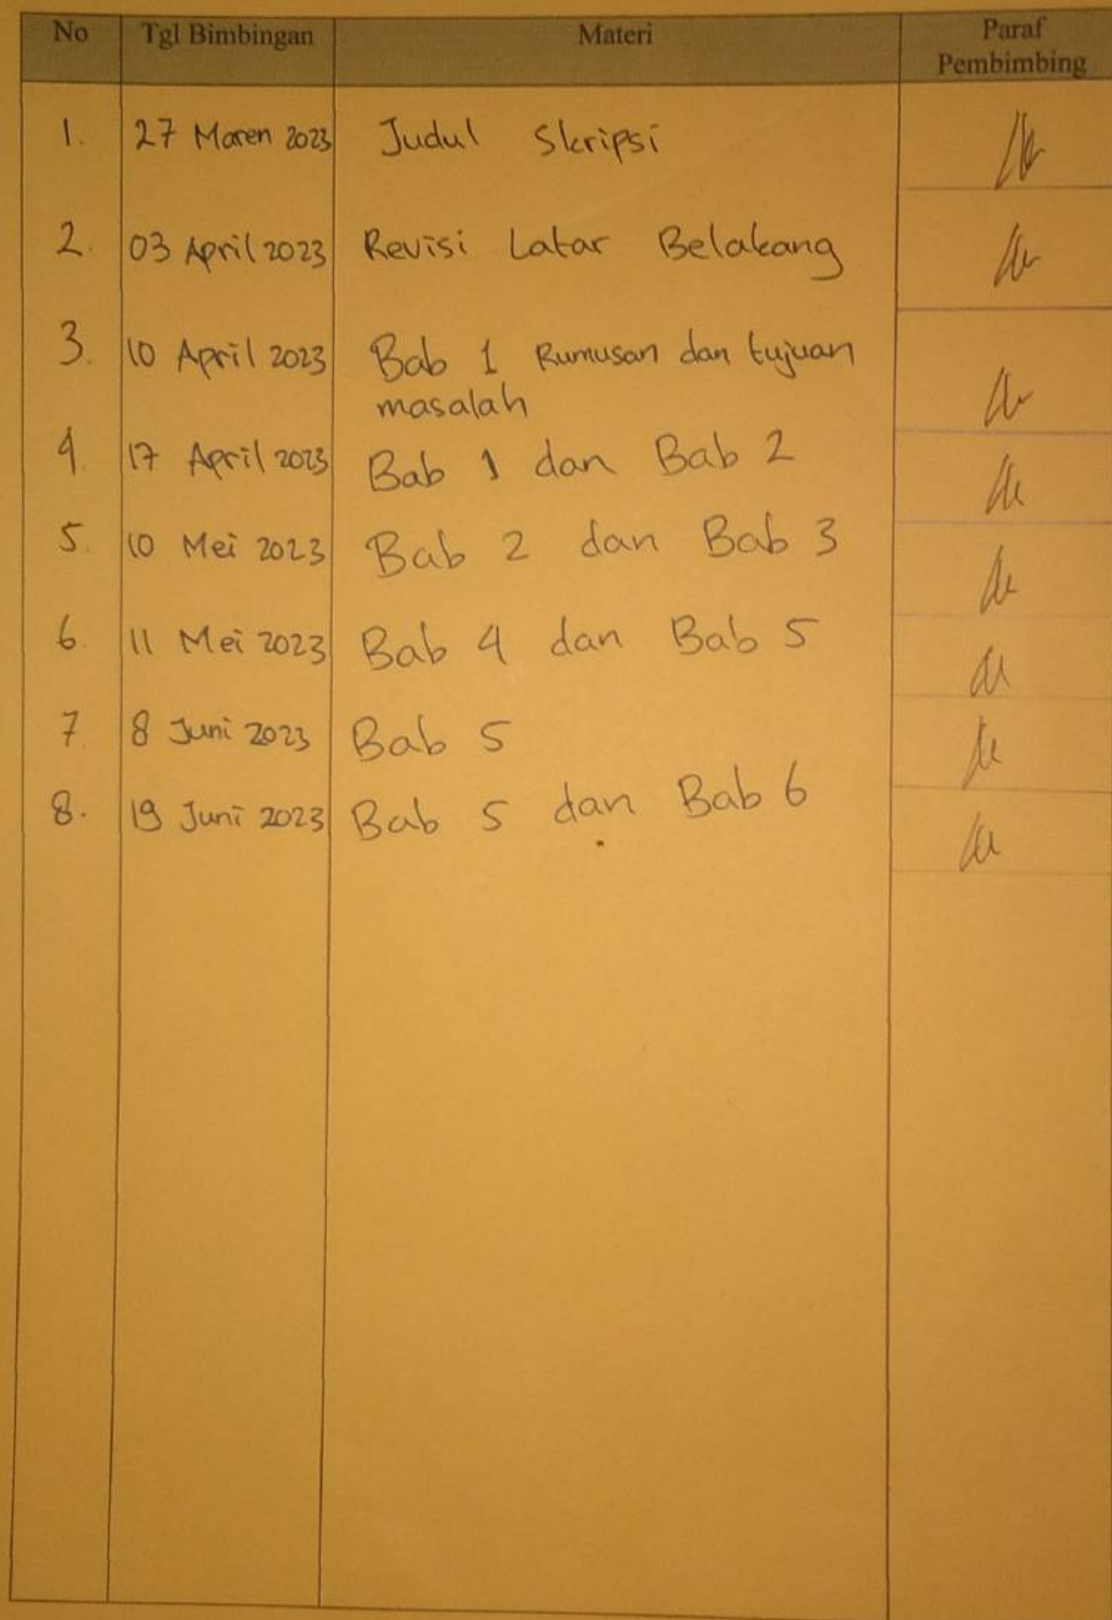 No Tgl Bimbingan Materi Paraf Pembimbing
1. 27 Maren 2023 Judul Skripsi
2. 03 April 2023 Revisi Latar Belakang
3. 10 April 2023 Bab 1 Rumusan dan tujuan
masalah
4. 17 April 2023 Bab 1 dan Bab 2
5. 10 Mei 2023 Bab 2 dan Bab 3
6. 11 Mei 2023 Bab 4 dan Bab 5
7. 8 Juni 2023 Bab 5
8. 19 Juni 2023 Bab 5 dan Bab 6